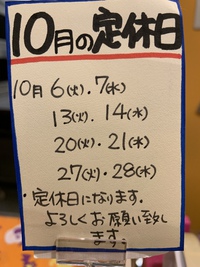 10月の定休日
10月 6(火)・7(水)
13(火)・14(水)
20(火)・21(水)
27(火)・28(水)
・定休日になります。
よろしくお願い致し
ます。